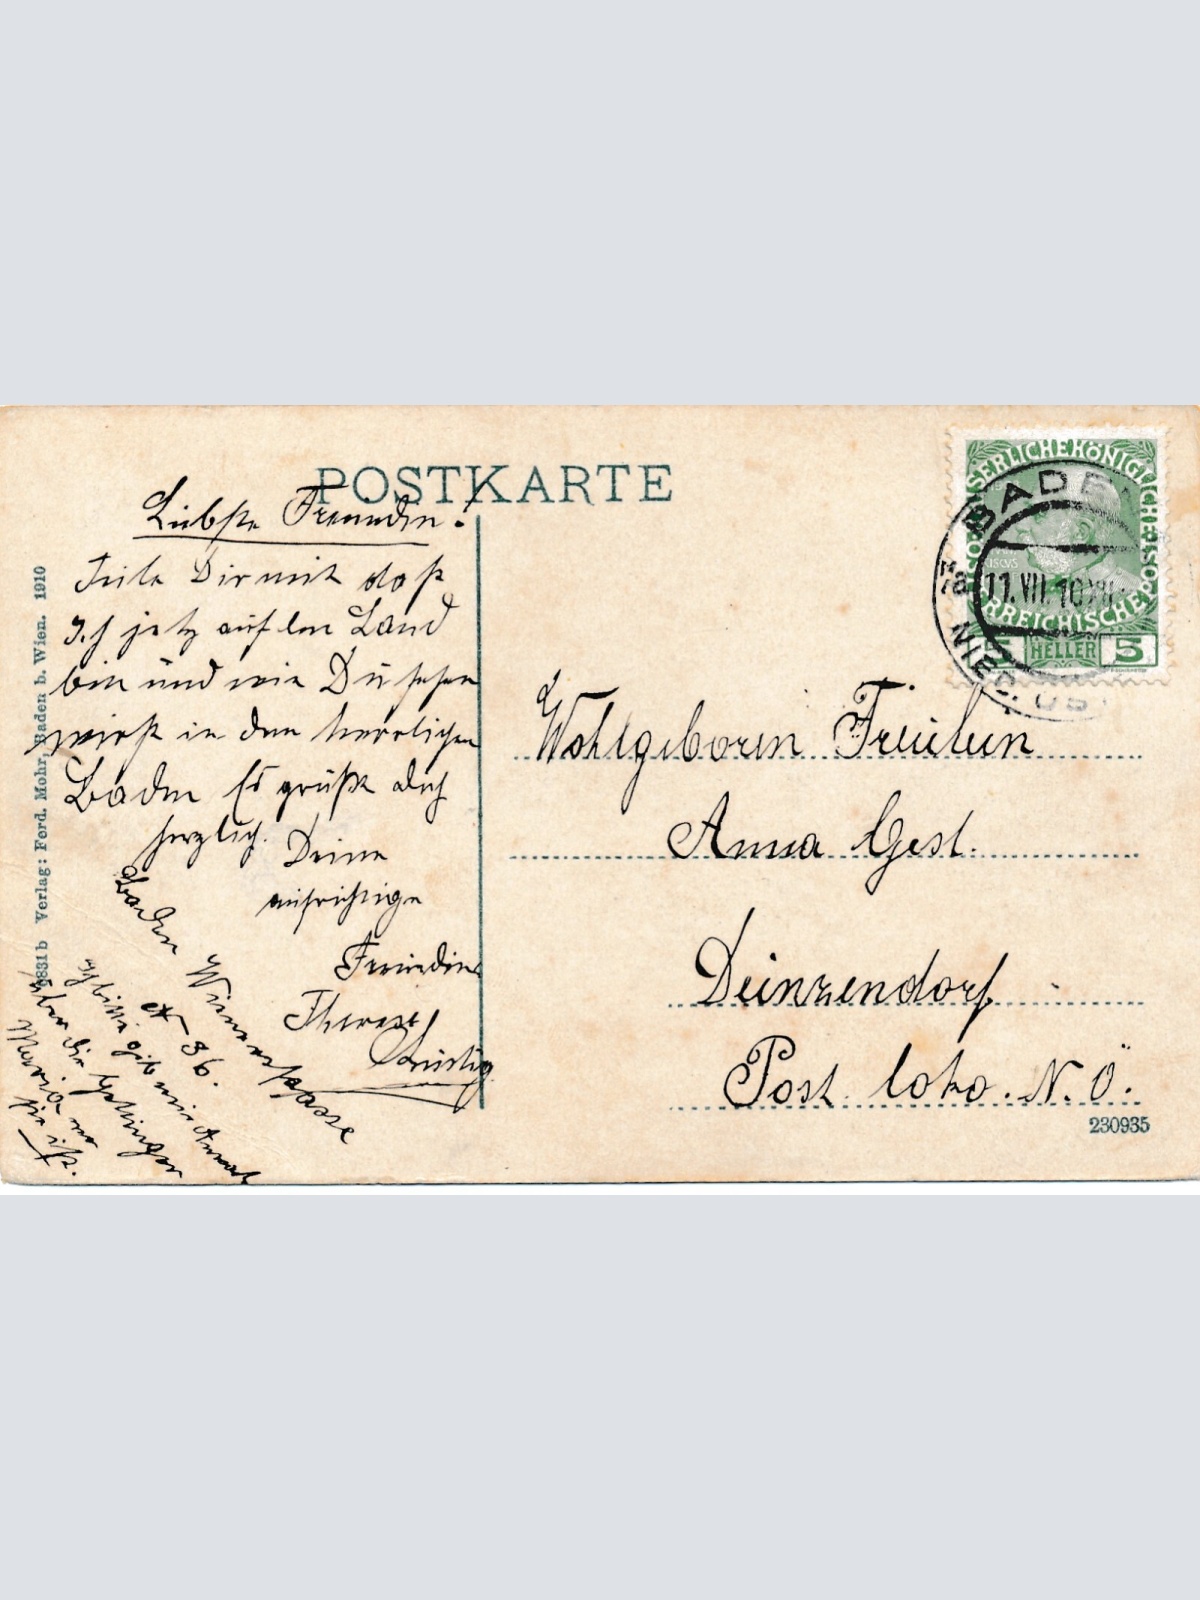 POSTKARTE
Liebste Freundin!
Teile Dir mit daß
ich jetz auf den Land
bin und wie Du sehen
wirst in den herrlichen
Baden Es grüßt dich
herzlich. Deine
aufrichtige
Freundin
Therese
Lustig
Baden Wienerstrasse
N 36.
bitte gib mir Antwort
über die
Maria wo
sie ist.
5831b Verlag: Ferd. Mohr, Baden b. Wien. 1910
KAISERLICHE KÖNIGLICHE ÖSTERREICHISCHE POST
5 HELLER 5
BADEN
11.VII.10
NIED. ÖST
Wohlgeboren Fräulein
Anna Gesl.
Deinzendorf
Post loko. N. Ö.
230935